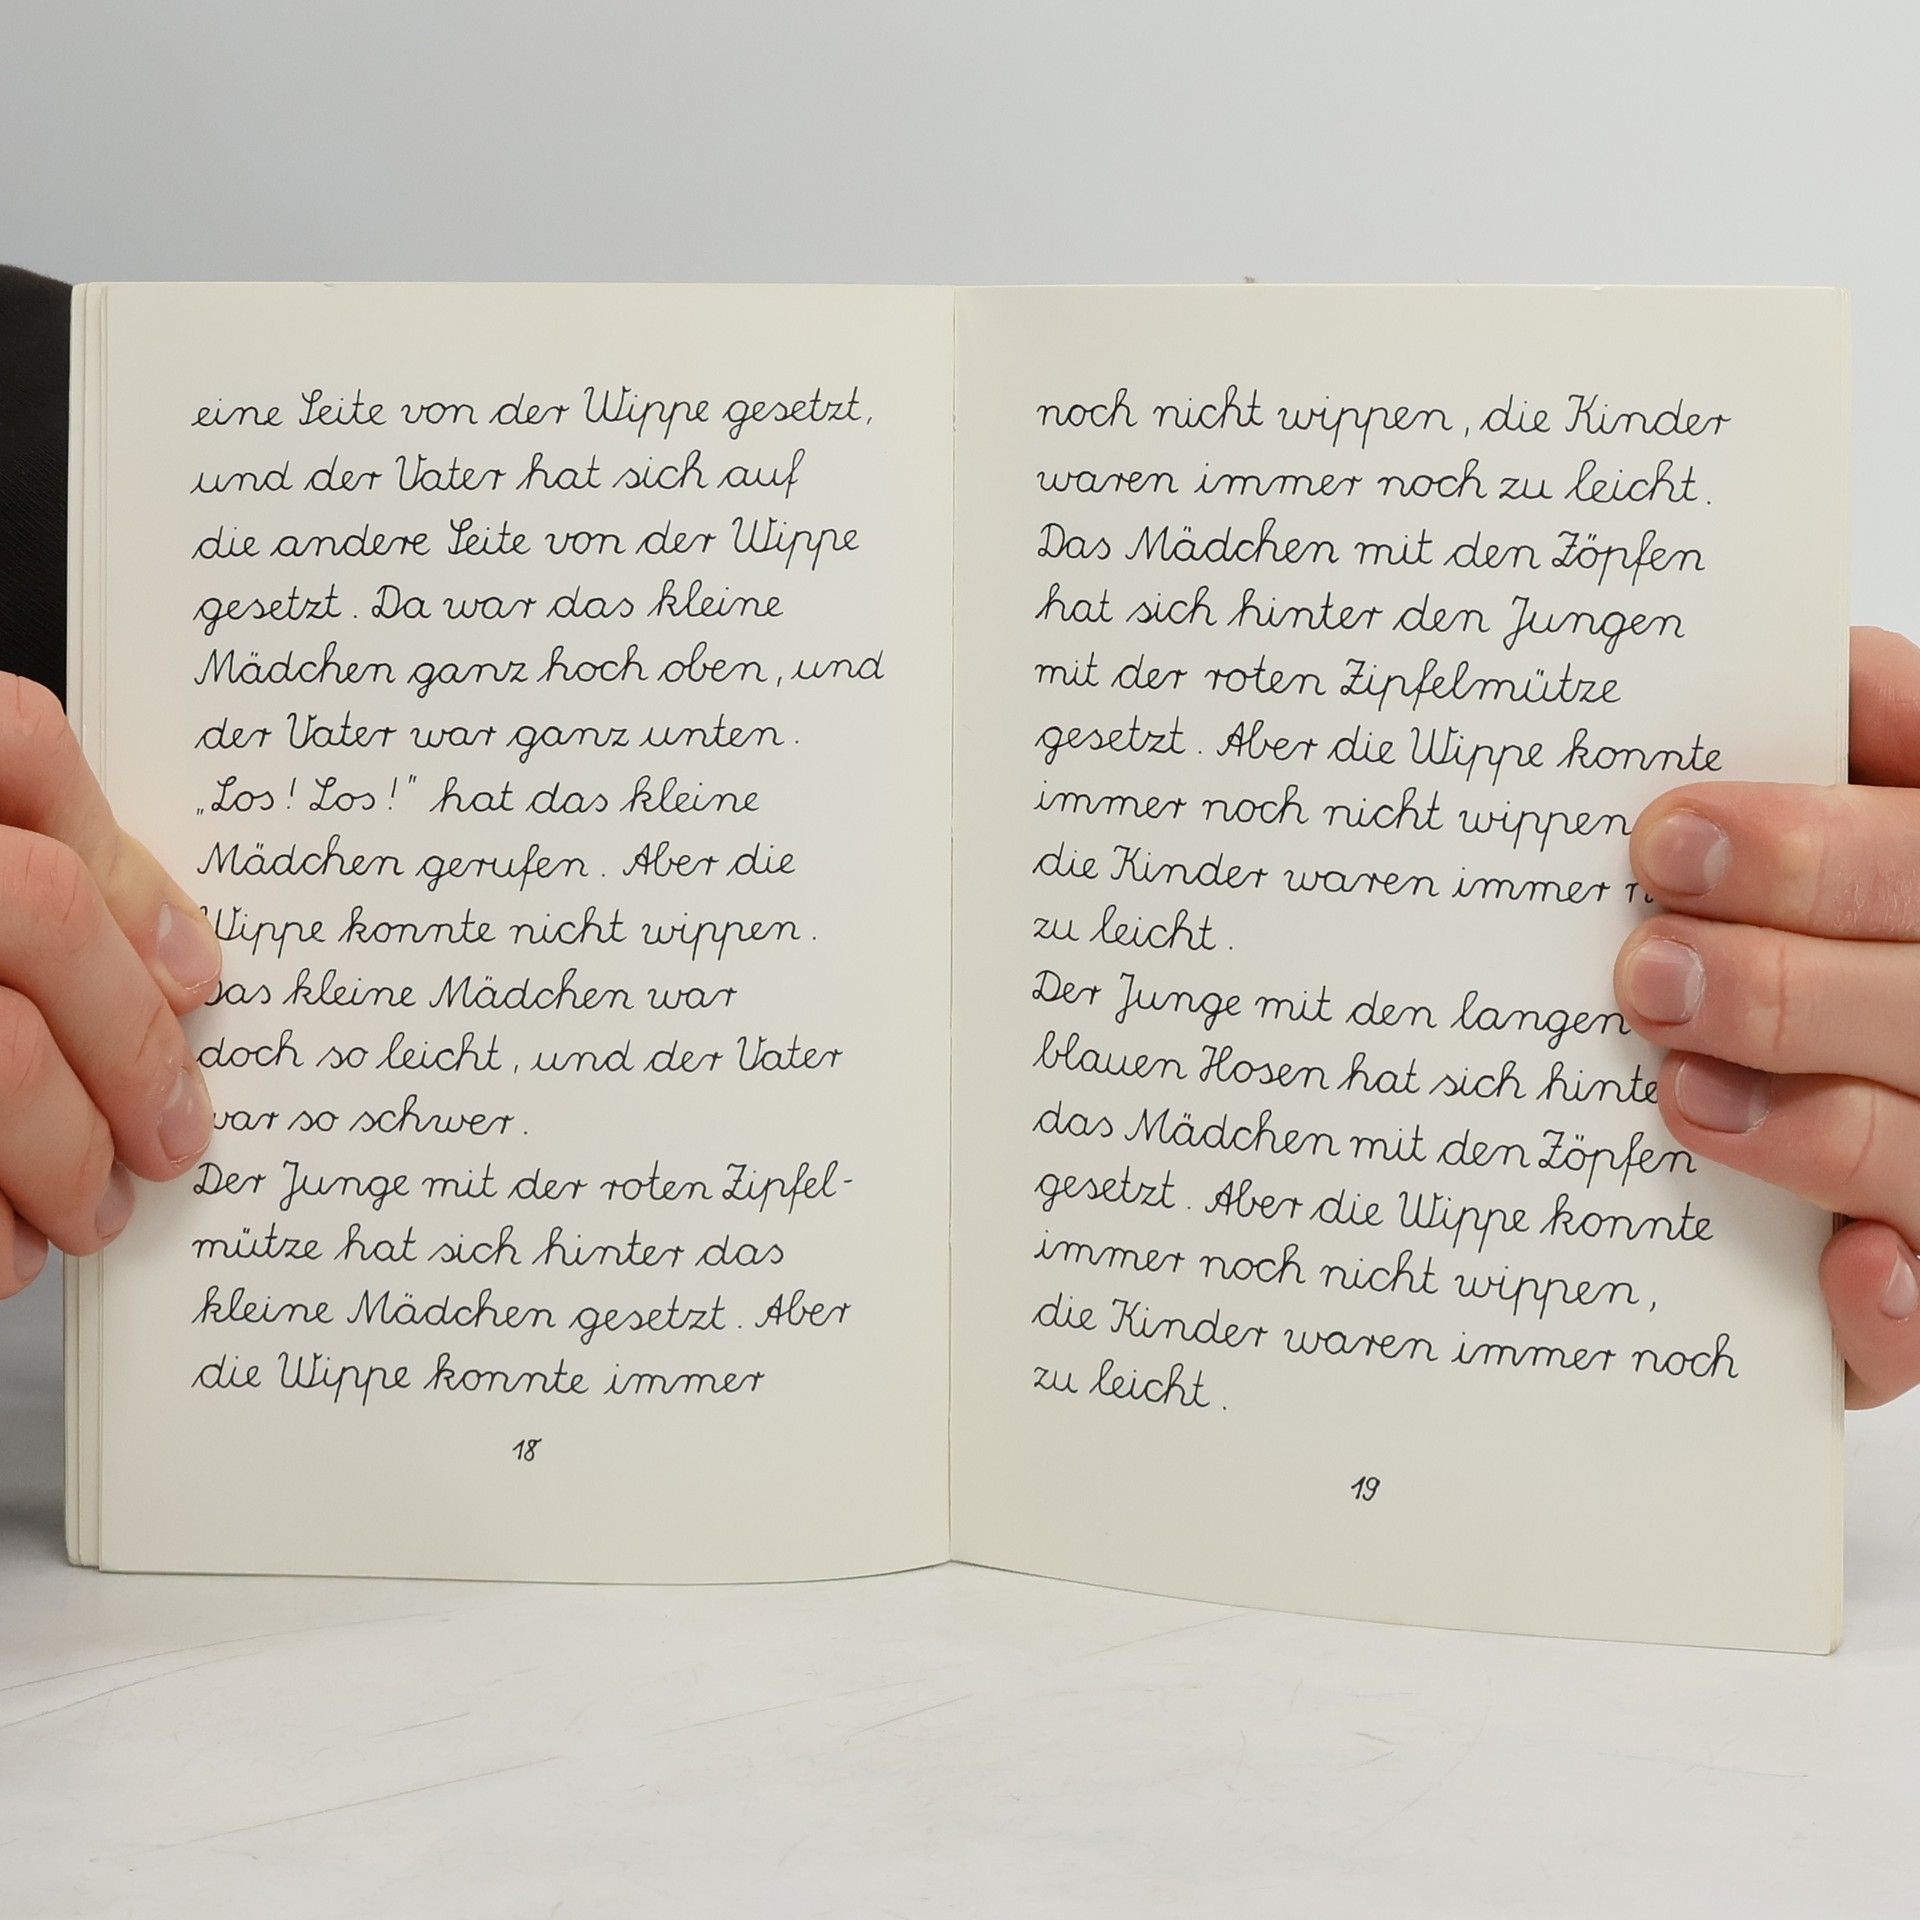 eine Seite von der Wippe gesetzt,
und der Vater hat sich auf
die andere Seite von der Wippe
gesetzt. Da war das kleine
Mädchen ganz hoch oben, und
der Vater war ganz unten.
„Los! Los!" hat das kleine
Mädchen gerufen. Aber die
Wippe konnte nicht wippen.
Das kleine Mädchen war
doch so leicht, und der Vater
war so schwer.
Der Junge mit der roten Zipfel-
mütze hat sich hinter das
kleine Mädchen gesetzt. Aber
die Wippe konnte immer
18
noch nicht wippen, die Kinder
waren immer noch zu leicht.
Das Mädchen mit den Zöpfen
hat sich hinter den Jungen
mit der roten Zipfelmütze
gesetzt. Aber die Wippe konnte
immer noch nicht wippen
die Kinder waren immer
zu leicht.
Der Junge mit den langen
blauen Hosen hat sich hinte
das Mädchen mit den Zöpfen
gesetzt. Aber die Wippe konnte
immer noch nicht wippen,
die Kinder waren immer noch
zu leicht.
19